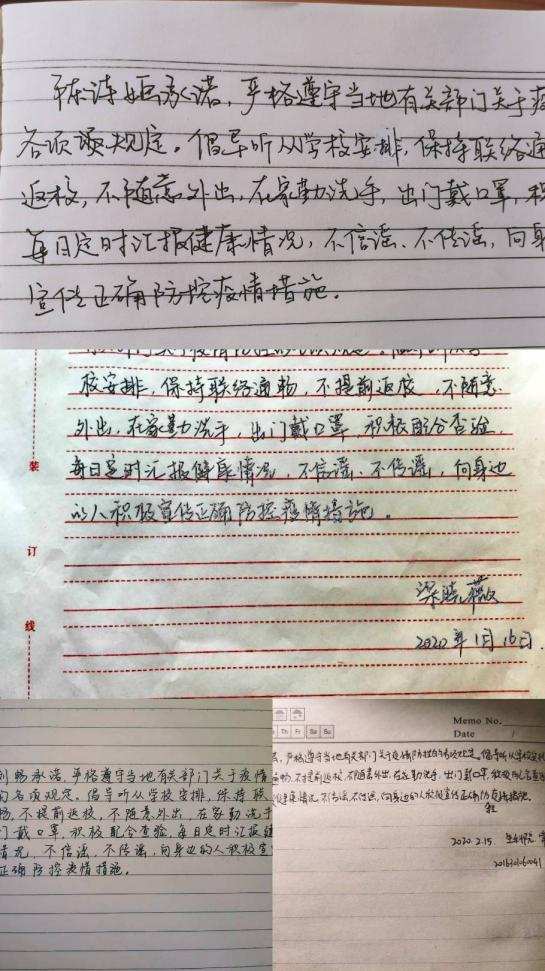 承诺，严格遵守当地有关部门关于疫
各项规定。倡导听从学校安排，保持联络通
返校，不随意外出，在家勤洗手，出门戴口罩，积
每日定时汇报健康情况，不信谣、不传谣，向身
宣传正确防控疫情措施。
校安排，保持联络通畅，不提前返校，不随意
外出，在家勤洗手，出门戴口罩，积极配合查验，
每日定时汇报健康情况，不信谣、不传谣，向身边
的人积极宣传正确防控疫情措施。
梁晓薇
2020年1月16日
装
订
线
畅承诺，严格遵守当地有关部门关于疫情
的各项规定。倡导听从学校安排，保持联
畅，不提前返校，不随意外出，在家勤洗手
门戴口罩，积极配合查验，每日定时汇报健
情况，不信谣，不传谣，向身边的人积极宣
正确防控疫情措施。
Memo No.
Date /
Th Fr Sa Su
严格遵守当地有关部门关于疫情防控的各项规定。倡导听从学校安排
通畅，不提前返校，不随意外出，在家勤洗手，出门戴口罩，积极配合查验
健康情况，不信谣，不传谣，向身边的人积极宣传正确防控疫情措施。
2020.2.15